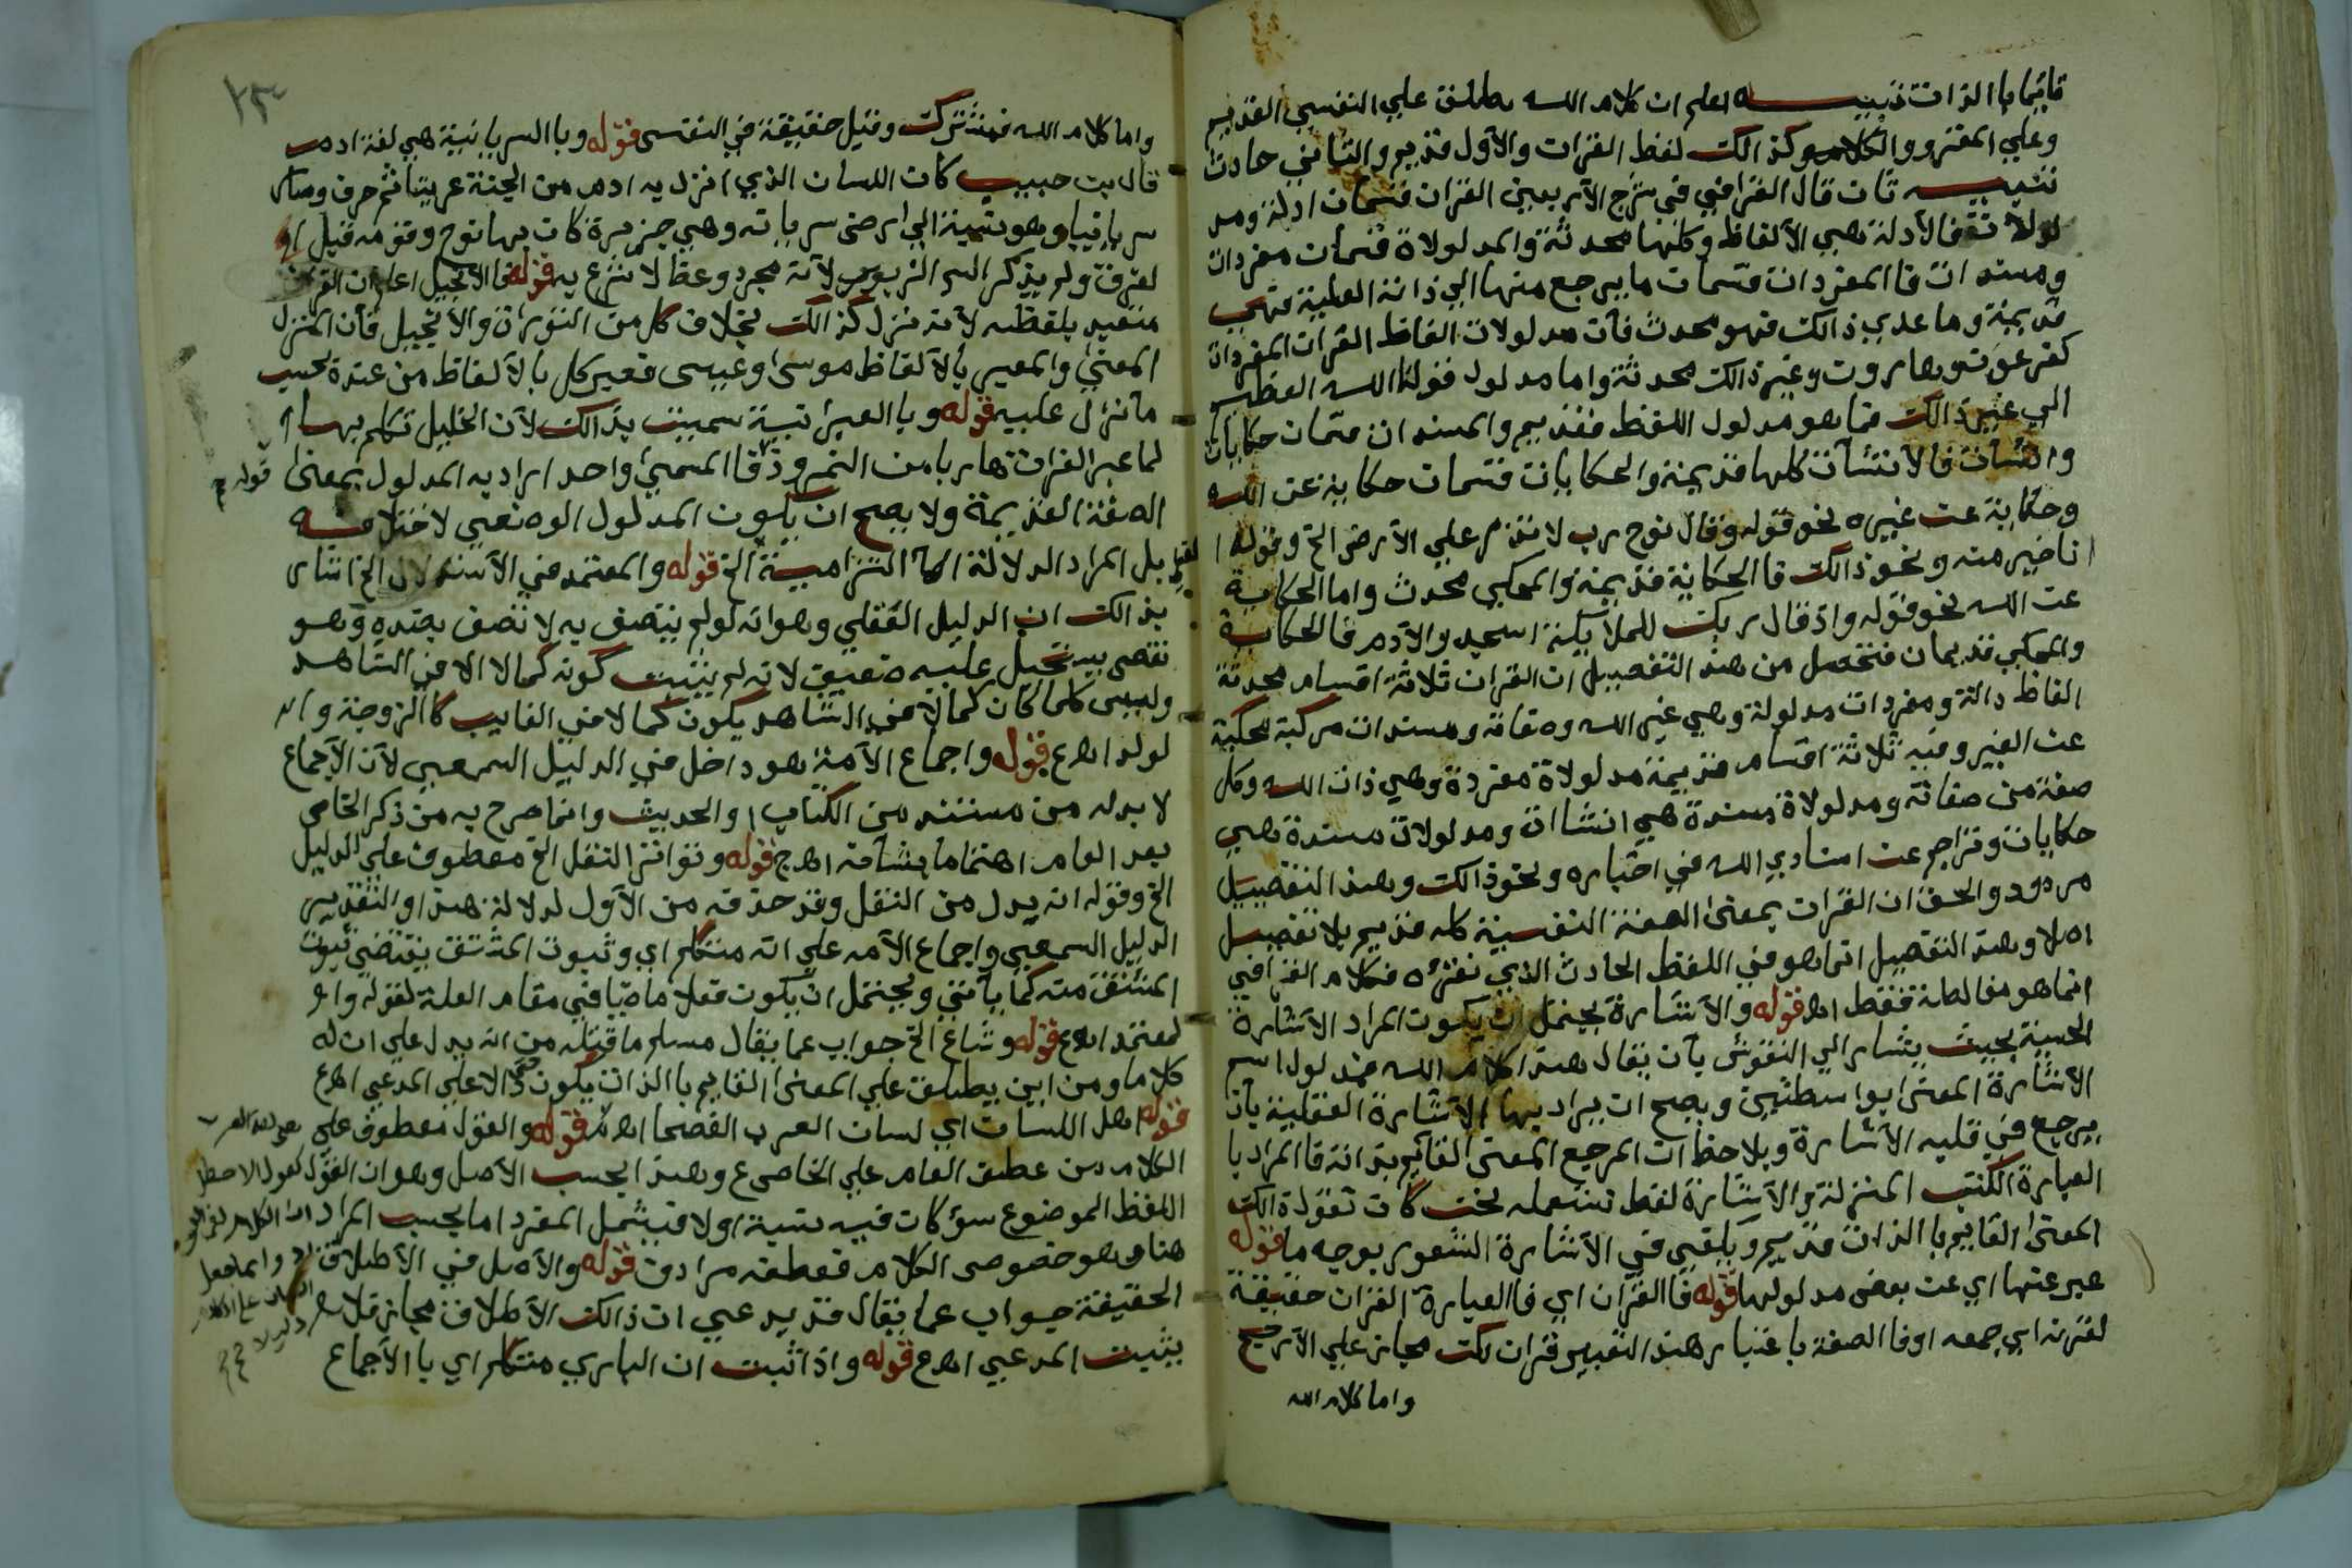 قايما باالذات تنبيـــــه اعلم ان كلام الله يطلق علي النفسي القديم
وعلي المقرو والكلام وكذالك لفظ القران والأول قديم والثاني حادث
تنبيـــه ثان قال القرافي في شرح الأربعين القران قسمان ادلة ومد
لولاة فالأدلة هي الألفاظ وكلها محدثة والمدلولاة قسمان مفردات
ومسندات فاالمفردات قسمات ما يرجع منها الي ذاته العلية فهي
قديمة وما عدي ذالك فهو محدث فأن مدلولات الفاظ القران المفردات
كفرعون وهاروت وغير ذالك محدثة واما مدلول قولنا الله العظيم
الي غير ذالك مما هو مدلول اللفظ فقديم والمسندان قسمان حكايات
وانشآت فالأنشآت كلها قديمة والحكايات قسمات حكاية عن الله
وحكاية عن غيره نحو قوله وقال نوح رب لا تذر علي الأرض الخ وقوله ا
انا خير منه ونحو ذالك فاالحكاية قديمة والمحكي محدث واما الحكاية
عن الله نحو قوله واذ قال ربك للملايكة اسجدوالآدم فالحكاية
والمحكي قديمان فتحصل من هذ التفصيل ان القران ثلاثة اقسام محدثة
الفاظ دالة ومفردات مدلولة وهي غير الله وصفاته ومسندات مركبة محكية
عن الغير وفيه ثلاثة اقسام قديمة مدلولاة مفردة وهي ذات الله وكل
صفة من صفاته ومدلولاة مسندة هي انشاات ومدلولات مسندة هي
حكايات وتراجم عن اسنادي الله في اخباره ونحو ذالك وهذ التفصيل
مردود والحق ان القران بمعنى الصفة النفسية كله قديم بلا تفصيل
اصلا وهذ التفصيل انما هو في اللفظ الحادث الذي نقرؤه فكلام القرافي
انما هو مغالطة فقط اهـ قوله والأشارة يحتمل ان يكون المراد الاشارة
الحسية بحيث يشار الي النقوش بأن يقال هذ اكلام الله فمدلول اسم
الأشارة المعنى ابواسطتين ويصح ان يراد بها الاشارة العقلية بأن
يرجع في قلبه الأشارة ويلاحظ ان المرجع المعنى القايم بذاته فاالمراد با
العبارة الكتب المنزلة والأشارة لفظ تستعمله نحن كان تقول ذالك
المعنى القايم با الذات قديم ويكفي في الأشارة الشعور بوجه ما قوله
عبر عنها اي عن بعض مدلولها قوله فاالقران اي فاالعبارة القران حقيقة
لقرنه اي جمعه اوفا الصفة باعتبار هذ التعبير قران لكن مجاز علي الأرجح
واما كلام الله
واما كلام الله فمشترك وقيل حقيقة في النفسي قوله وبا السريانية هي لغة ادم
قال بن حبيب كان اللسان الذي انزل به ادم من الجنة عربيا ثم حرف وصار
سريانيا وهو نسبة الي ارض سريانه وهي جزيرة كان بها نوح وقومه قبل ا
لغرق ولم يذكر السر الزبور لأنه مجرد وعظ لا شرع به قوله فاالأنجيل اعلم ان القران
متعبد بلفظه لأنه منزل كذالك بخلاف كل من التوراة والأنجيل فأن المنزل
المعنى والمعبر بالألفاظ موسى وعيسى فعبر كل بالألفاظ من عنده بحسب
ما نزل عليه قوله وبا العبرانية سميت بذالك لأن الخليل تكلم بها
لما عبر الفرات هاربا من النمروذ فاالمسمى واحد اراد به المدلول بمعنى
الصفة القديمة ولا يصح ان يكون المدلول الوضعي لاختلافه
بل المراد الدلالة الالتزامية الخ قوله والمعتمد في الأستدلال الخ اشار
بذالك ان الدليل العقلي وهو انه لو لم يتصف به لاتصف بضده وهو
نقص يستحيل عليه ضعيف لانه لم يثبت كونه كمالا الا في الشاهد
وليس كلما كان كمالا في الشاهد يكون كمالا في الغايب كاالزوجة وا
لولد اهـ ع قوله واجماع الأمة هو داخل في الدليل السمعي لأن الأجماع
لا بد له من مستند من الكتاب او الحديث وانما صرح به من ذكر الخاص
بعد العام اهتماما بشأنه اهـ ج قوله وتواتر النقل الخ معطوف علي الدليل
الخ وقوله انه بدل من النقل وقد حذفه من الأول لدلالة هذ او التقدير
الدليل السمعي واجماع الأمه علي انه متكلم اي وثبوت المشتق يقتضي ثبوت
المشتق منه كما يأتي ويحتمل ان يكون فعلا ماضيا في مقام العلة لقوله وا
لمعتمد اهـ ع قوله وشاع الخ جواب عما يقال مسلم ما قبله من انه يدل علي ان له
كلاما ومن اين يطلق علي المعنى القايم باالذات يكون دالا علي المدعي اهـ ع
قوله اهل اللسان اي لسان العرب الفصحا اهـ قوله والقول معطوف علي
الكلام من عطف العام علي الخاص ع وهذ ابحسب الأصل وهو ان القول
اللفظ الموضوع سؤ كان فيه نسبة اولا فيشمل المفرد اما بحسب المراد
هنا وهو خصوص الكلام فعطفه مرادف قوله والأصل في الأطلاق
الحقيقة جواب عما يقال قد يدعي ان ذالك الأطلاق مجاز فلا
يثبت المدعي اهـ ع قوله واذا ثبت ان الباري متكلم اي با الأجماع